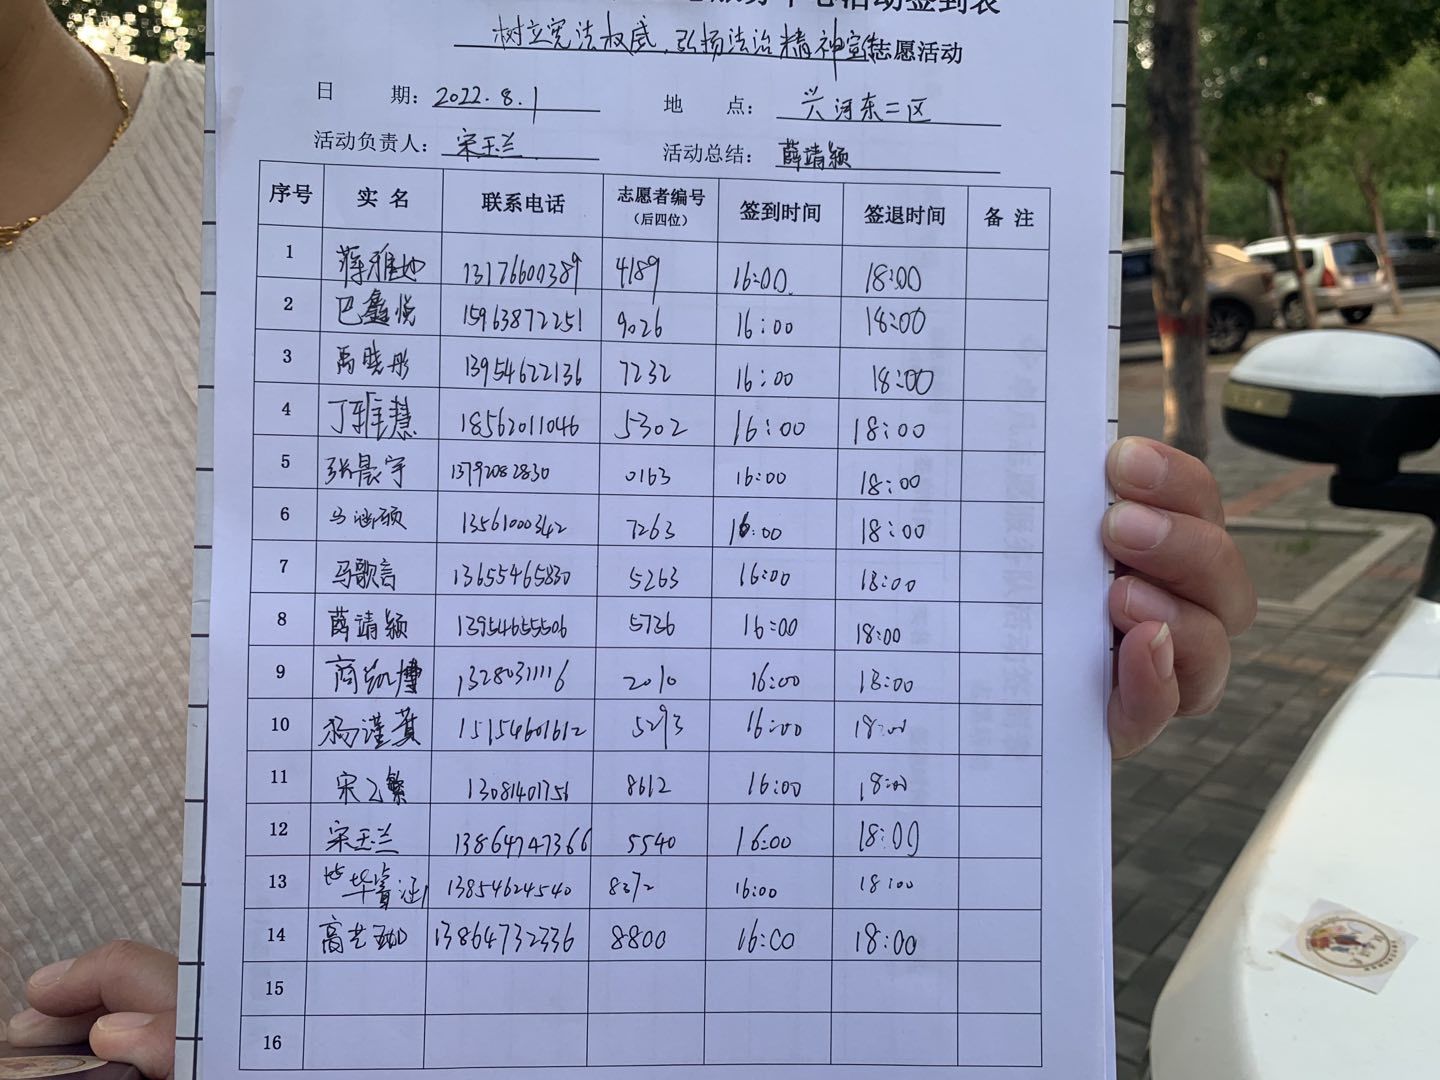 活动签到表
树立宪法权威，弘扬法治精神宣传志愿活动
日 期：2022.8.1 地 点：兴河东二区
活动负责人：宋玉兰 活动总结：薛靖颖
序号 实名 联系电话 志愿者编号（后四位） 签到时间 签退时间 备注
1 13176600389 4189 16:00 18:00
2 巴鑫悦 15963872251 9026 16:00 18:00
3 禹晓彤 13954622136 7232 16:00 18:00
4 丁雅慧 18562011046 5302 16:00 18:00
5 张晨宇 13792082830 0163 16:00 18:00
6 马涵硕 13561000342 7263 16:00 18:00
7 马歌言 13655465830 5263 16:00 18:00
8 薛靖颖 13954655506 5736 16:00 18:00
9 商凯博 13280311116 2010 16:00 18:00
10 杨谨萁 15154601612 5293 16:00 18:00
11 宋乙繁 13081401756 8612 16:00 18:00
12 宋玉兰 13864747366 5540 16:00 18:00
13 毕睿涵 13854624540 8372 16:00 18:00
14 高艺珈 13864732336 8800 16:00 18:00
15
16